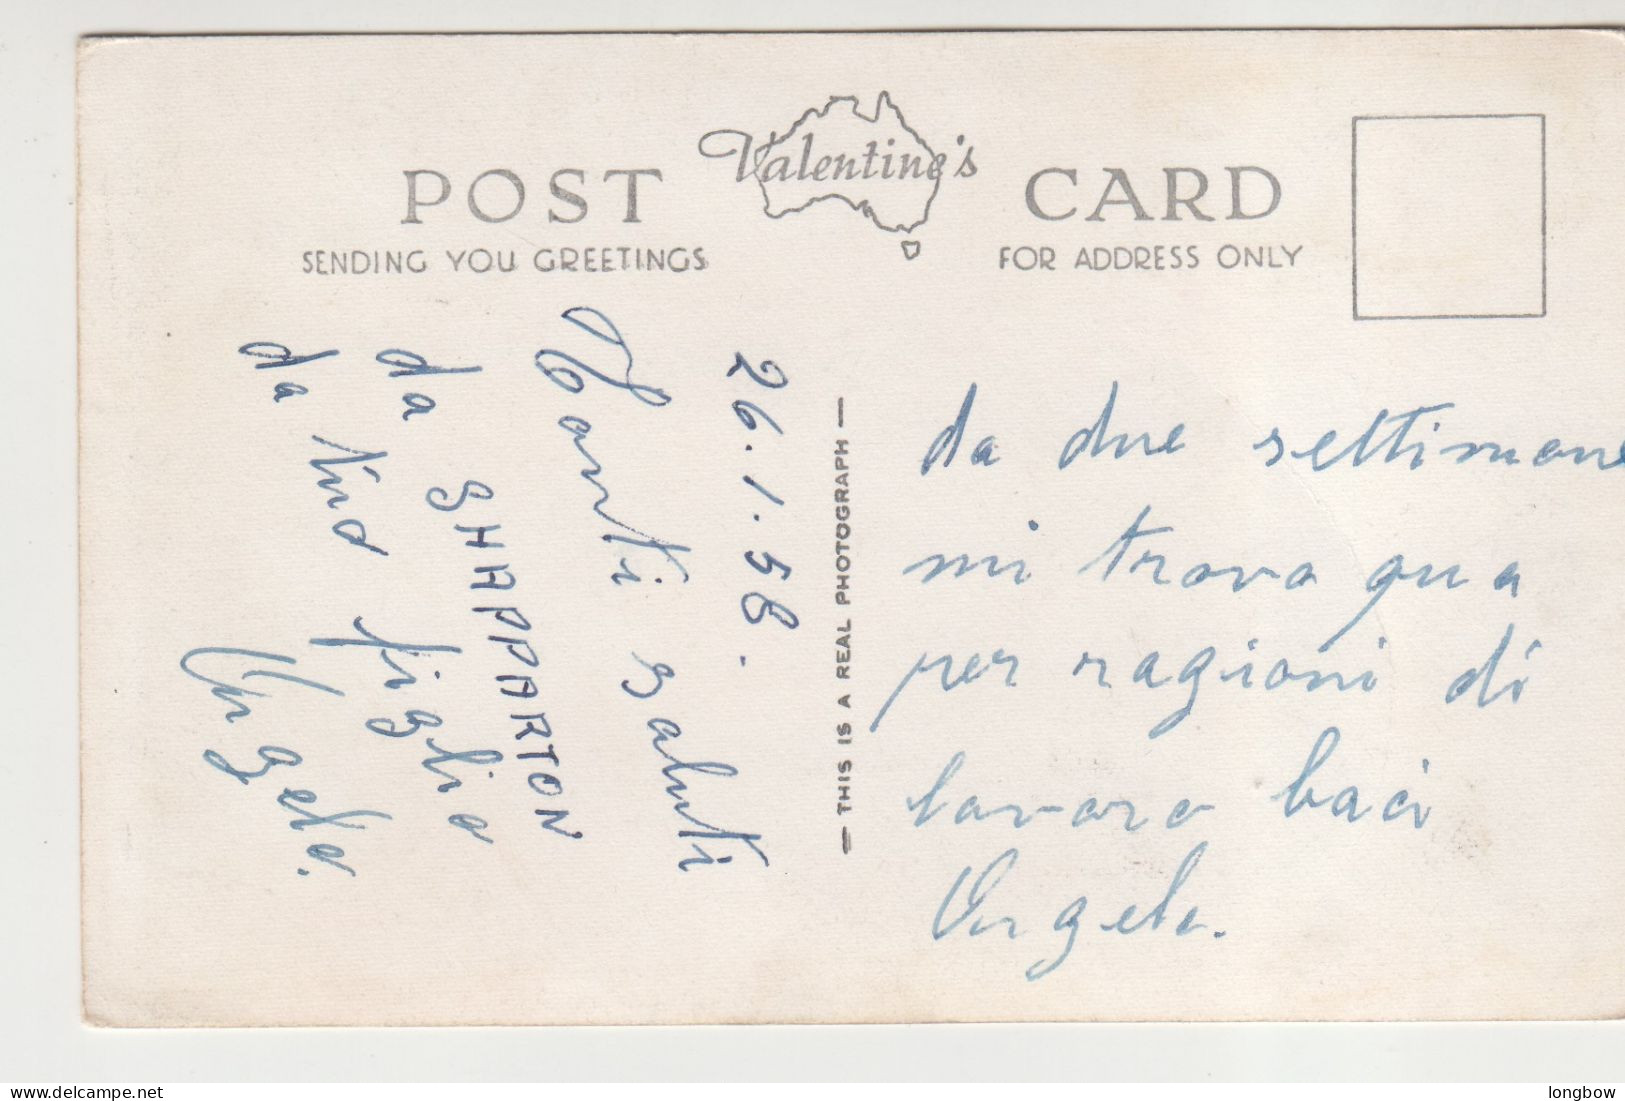 Valentine's
POST CARD
SENDING YOU GREETINGS
FOR ADDRESS ONLY
26.1.58.
Tanti saluti
da SHAPPARTON
da tuo figlio
Virgelo.
— THIS IS A REAL PHOTOGRAPH —
da due settimane
mi trovo qua
per ragioni di
lavoro baci
Virgelo.
longbow
www.delcampe.net